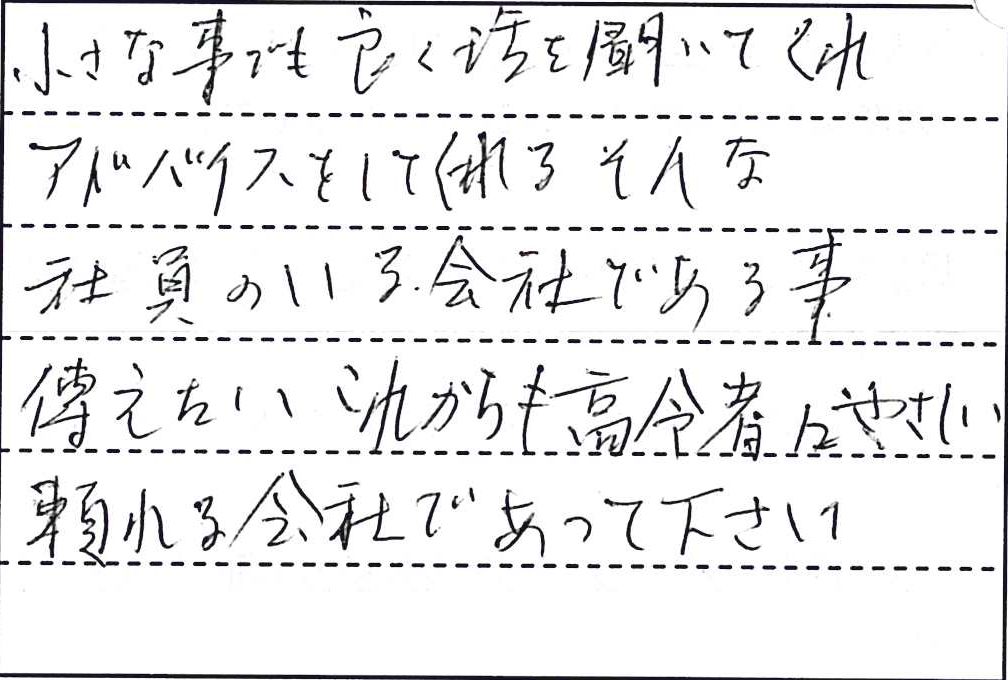 小さな事でも良く話を聞いてくれ
アドバイスをして呉れるそんな
社員のいる会社である事
傳えたい これからも高令者にやさしい
頼れる会社であって下さい